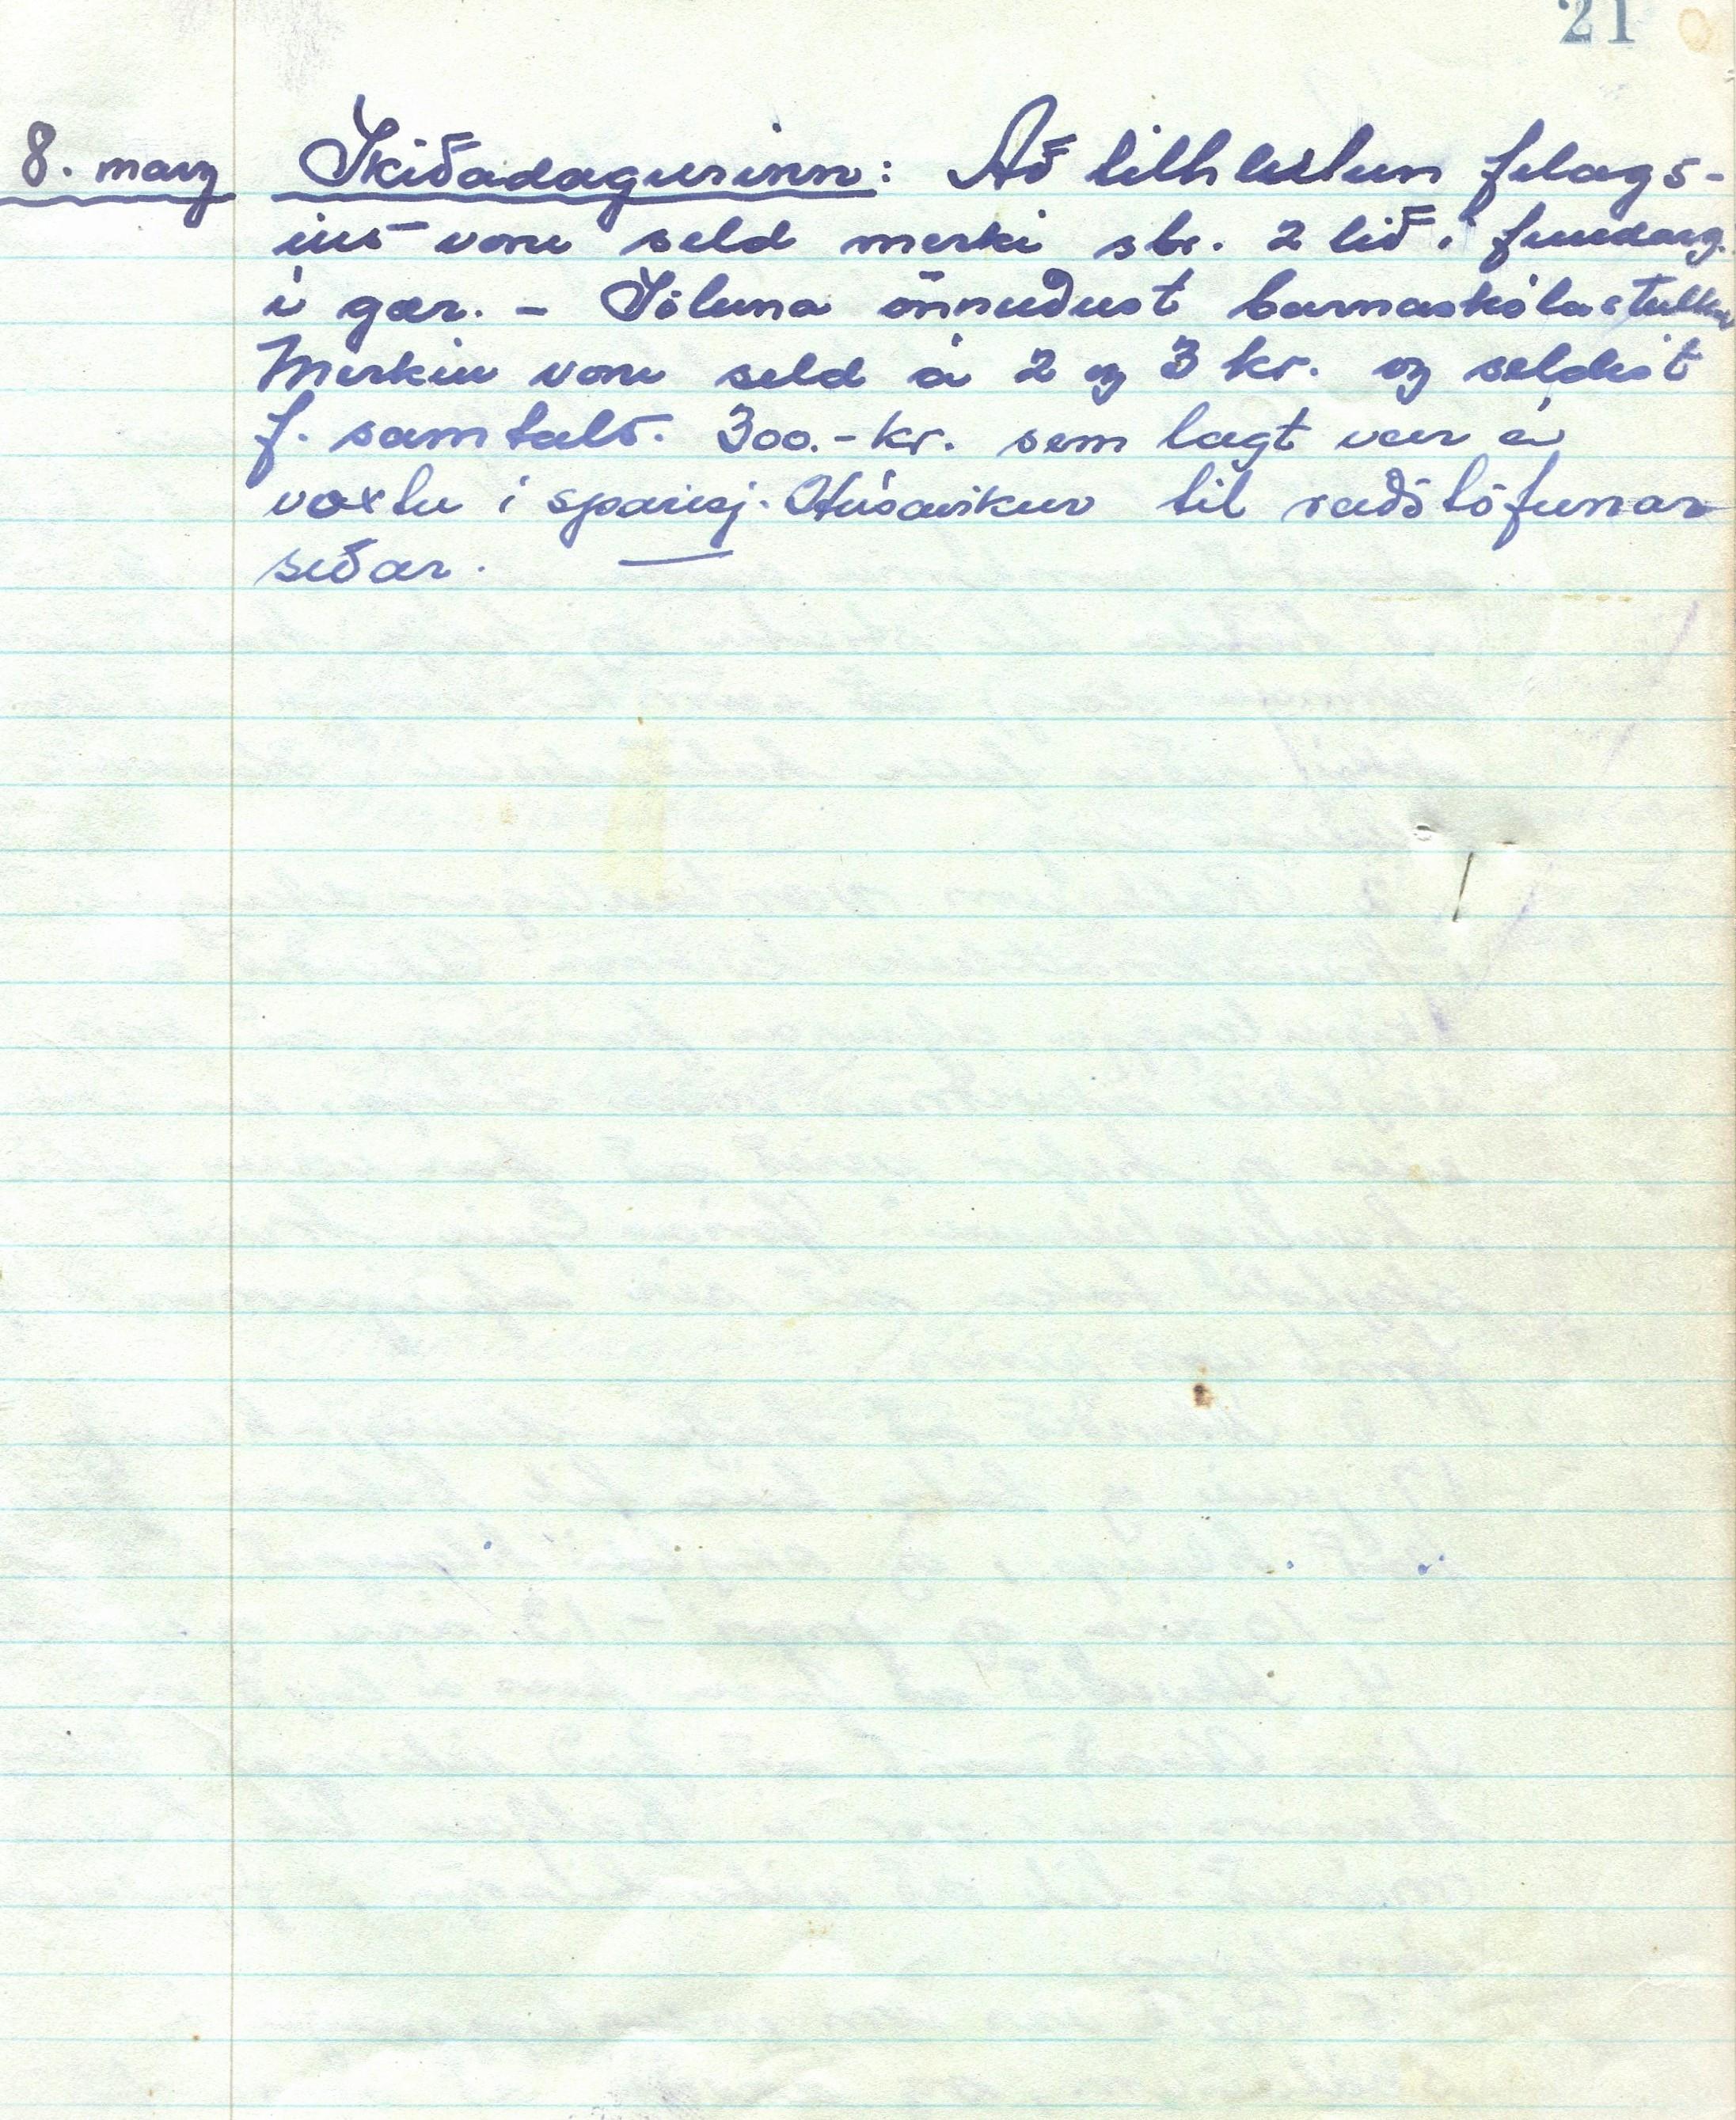 21
8. marz Skiðadagurinn: Að tilhlutun félags-
ins voru seld merki sbr. 2 lið í fundarg.
í gær. - Söluna önnuðust barnaskólastúlkur
Merkin voru seld á 2 og 3 kr. og seldist
f. samtals. 300.- kr. sem lagt var á
voxtu í sparisj. Húsavikur til raðstöfunar
siðar.